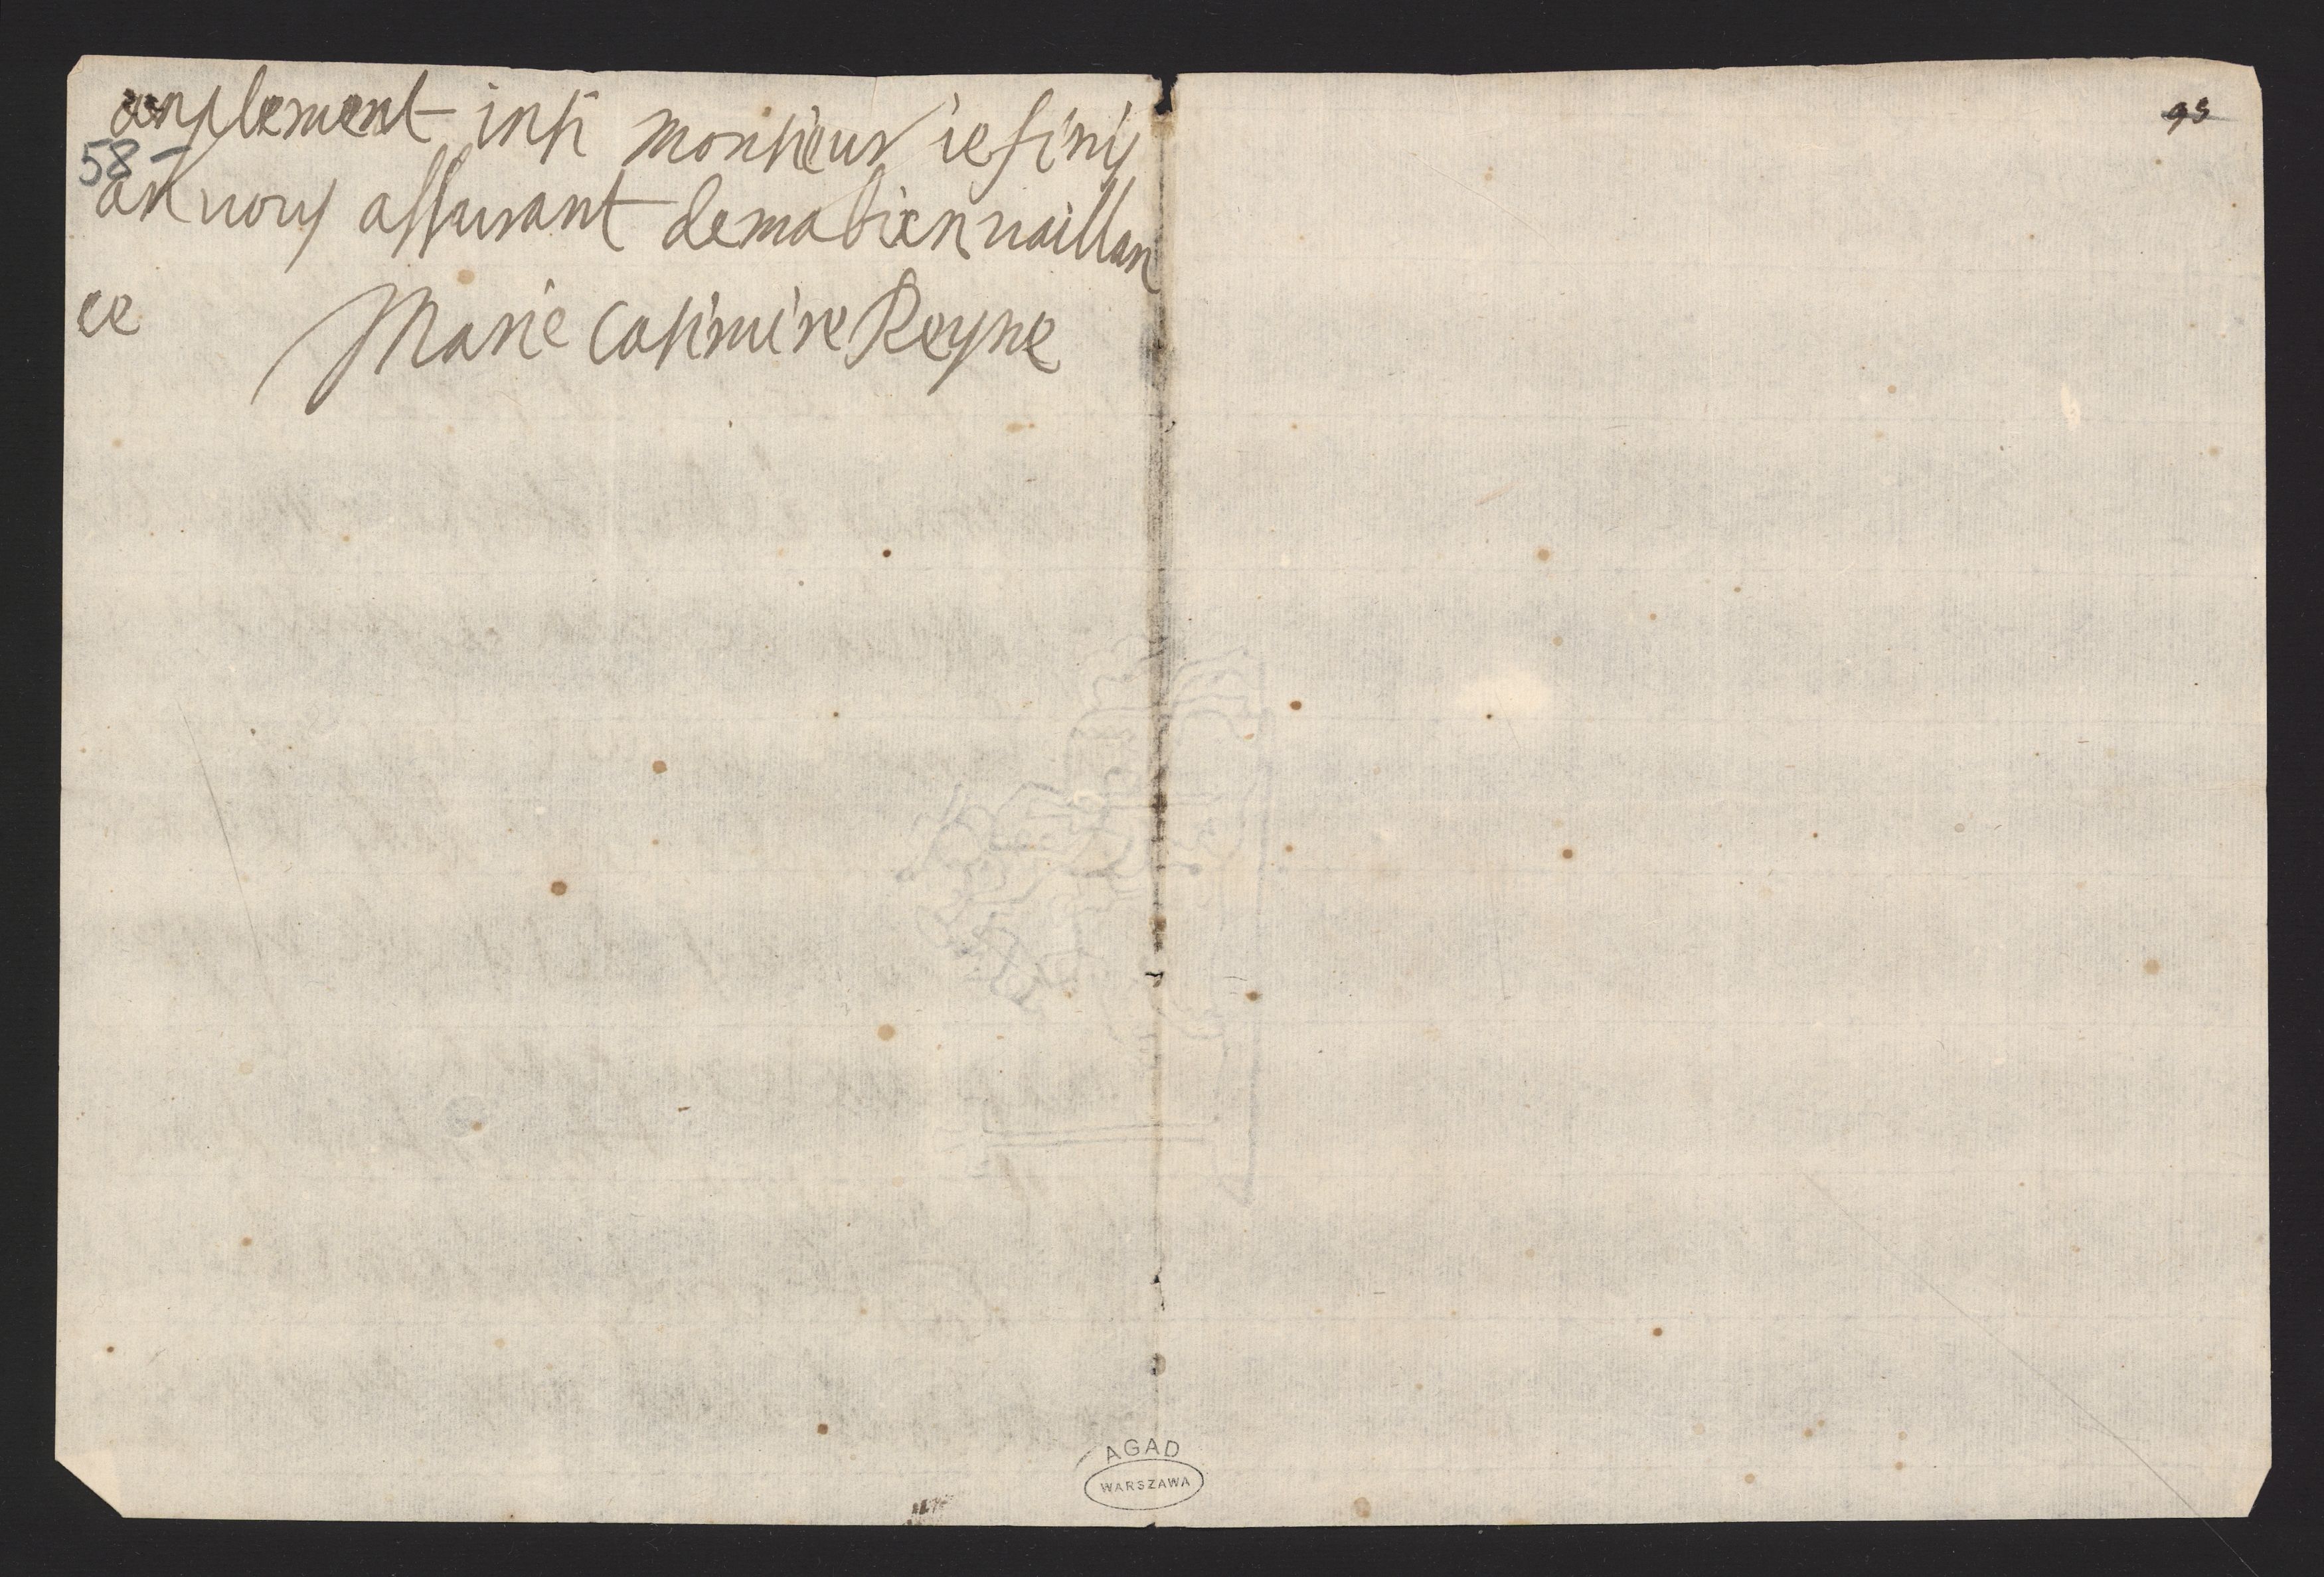 anplement insi monsieur ie finis
58-
an vous assurant de ma bien vaillan
ce Marie Casimire Reyne
93
AGAD
WARSZAWA